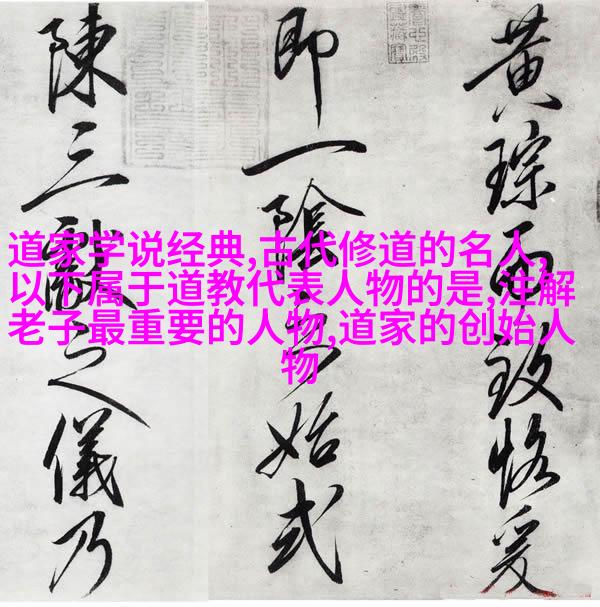 黄琮而致恪爰
即一陰之始式
陳三獻之儀乃
道家学说经典,古代修道的名人,
以下属于道教代表人物的是,注解
老子最重要的人物,道家的创始人
物